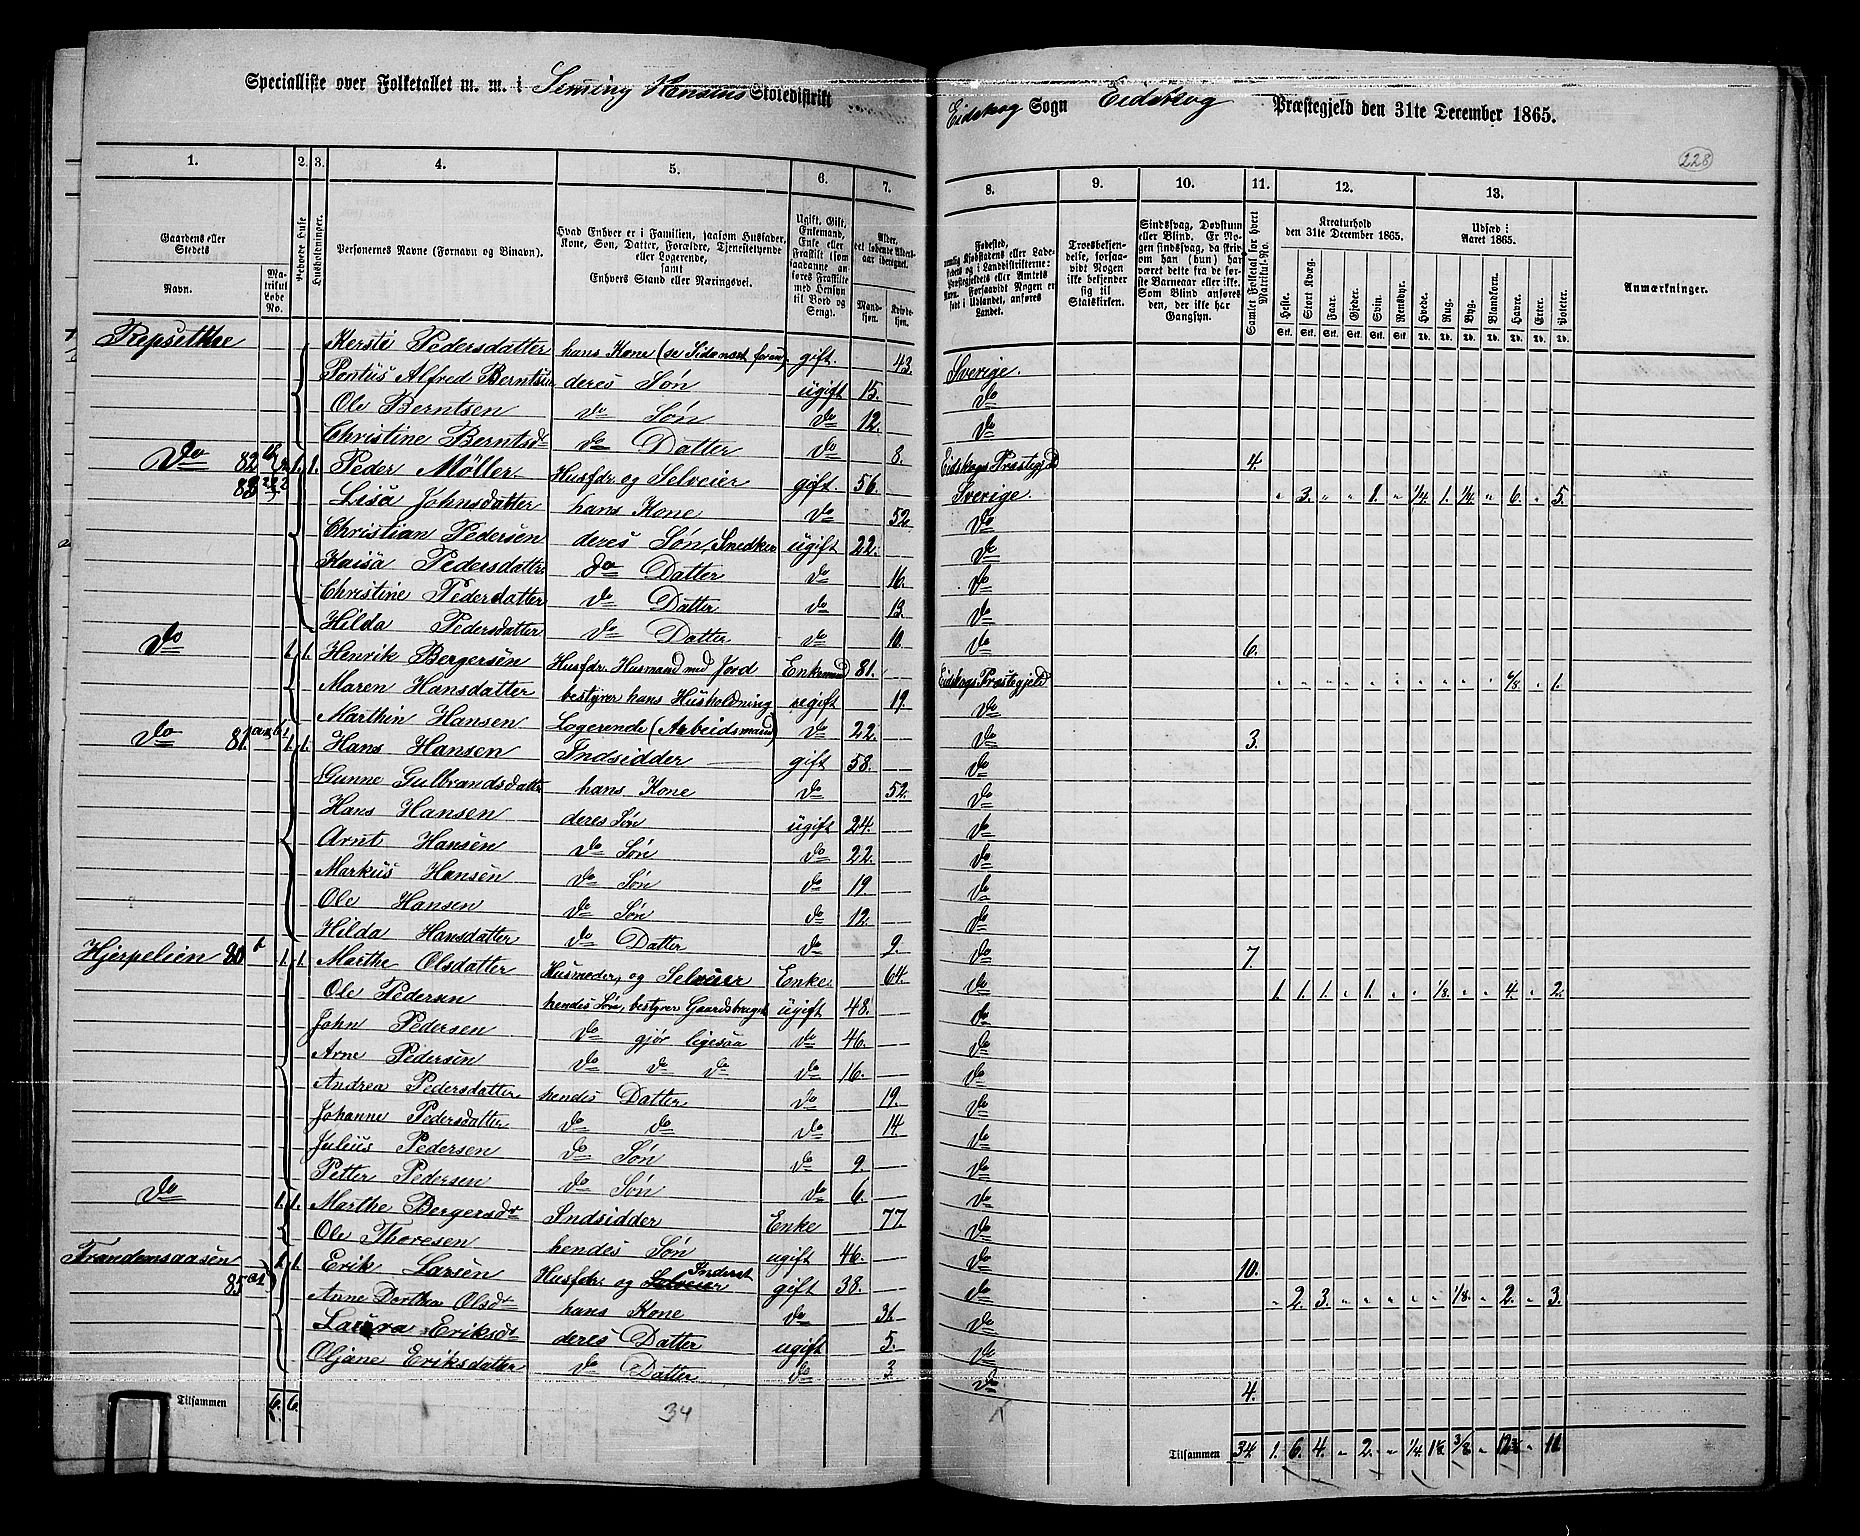 Specialliste over Folketallet m. m. i Simeny Hansens Skoledistrikt
Eidskog Sogn Eidskog Præstegjeld den 31te December 1865.
228
1. 2. 3. 4. 5. 6. 7. 8. 9. 10. 11. 12. 13.
Gaardens eller Stedets Navn. Matrikul Løbe No. Beboede Huse Husholdninger. Personernes Navne (Fornavn og Binavn). Hvad Enhver er i Familien, saasom Husfader, Kone, Søn, Datter, Forældre, Tjenestetyende eller Logerende, samt Enhvers Stand eller Næringsvei. Alder, det løbende Alders-aar iberegnet. Mandkjøn. Kvindekjøn. Troesbekjendelse, forsaavidt Nogen ikke bekjender sig til Statskirken. Samlet Folketal for hvert Matrikul-No. Kreaturhold den 31te December 1865. Udsæd i Aaret 1865. Anmærkninger.
Heste. Stort Kvæg. Faar. Gjeder. Svin. Rensdyr. Hvede. Rug. Byg. Blandkorn. Havre. Erter. Poteter.
Kersti Pedersdatter hans Kone (se Side næst foran) gift. 43. Sverige.
Pontus Alfred Berntsen deres Søn ugift 15. do
Ole Berntsen do Søn do 12. do
Christine Berntsdt do Datter do 8. Eidskogs Præstegjeld 4.
do 82 1. 1. Peder Möller Husfdr. og Selveier gift. 56. Sverige. " 3. " " 1. " 1/4 1. 1/4 " 6. " 5.
83 Lisa Johnsdatter hans Kone do 52 do
Christian Pedersen deres Søn, Snedker ugift 22. do
Kaisa Pedersdatter do Datter do 16. do
Christine Pedersdatter do Datter do 13. do
Hilda Pedersdatter do Datter do 10. do 6.
do 1. 1. Henrik Bergersen Husfdr. Husmand med Jord Enkemand 81. Eidskogs Præstegjeld 6/8 1.
Maren Hansdatter bestyrer hans Husholdning ugift 19. do
Marthin Hansen Logerende (Arbeidsmand) do 22. do 3.
do 81 1. 1. Hans Hansen Indsidder gift 58. do
Gunne Gulbrandsdatter hans Kone do 52. do
Hans Hansen deres Søn ugift 24. do
Arnt Hansen do Søn do 22. do
Markus Hansen do Søn do 19. do
Ole Hansen do Søn do 12. do
Hilda Hansdatter do Datter do 9. do 7.
Hjerpelien 80 1. 1. Marthe Olsdatter Husmoder og Selveier Enke. 64. do 1. 1. 1. " 1. " " 1/8. " " 4. " 2.
Ole Pedersen hendes Søn, bestyrer Gaardsbruget ugift 48. do
John Pedersen do gjør ligesaa do 46. do
Arne Pedersen do do do do 16. do
Andrea Pedersdatter hendes Datter do 19. do
Johanne Pedersdatter do do do 14 do
Julius Pedersen do Søn do 9. do
Petter Pedersen do Søn do 6. do
do 1. 1. Marthe Bergersdt Indsidder Enke 77. do
Ole Thoresen hendes Søn ugift 46. do 10.
1. 1. Erik Larsen Husfdr. og Selveier Inderst gift 38. do " 2. 3. " " " " " 1/8. " 2. " 3.
85 Anne Dorthea Olsdt hans Kone do 36 do
Laura Eriksdt deres Datter ugift 5. do
Oljane Eriksdatter do Datter do 3. do 4.
Tilsammen 6. 6. 34
Tilsammen 34 1. 6. 4. " 2. " 1/4 3/8 " " 11